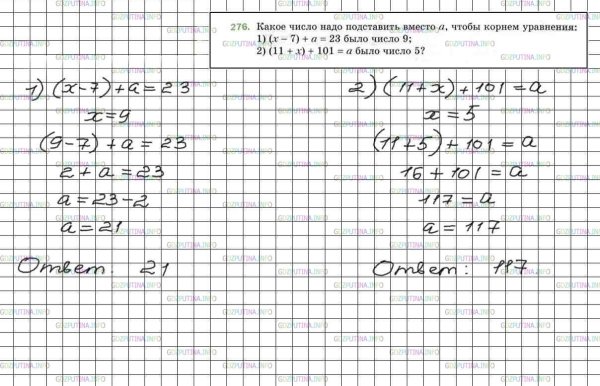 276. Какое число надо подставить вместо a, чтобы корнем уравнения:
1) (x − 7) + a = 23 было число 9;
2) (11 + x) + 101 = a было число 5?
1) (x-7)+a=23
x=9
(9-7)+a=23
2+a=23
a=23-2
a=21
Ответ. 21
2) (11+x)+101=a
x=5
(11+5)+101=a
16+101=a
117=a
a=117
Ответ: 117
GDZPUTINA.INFO